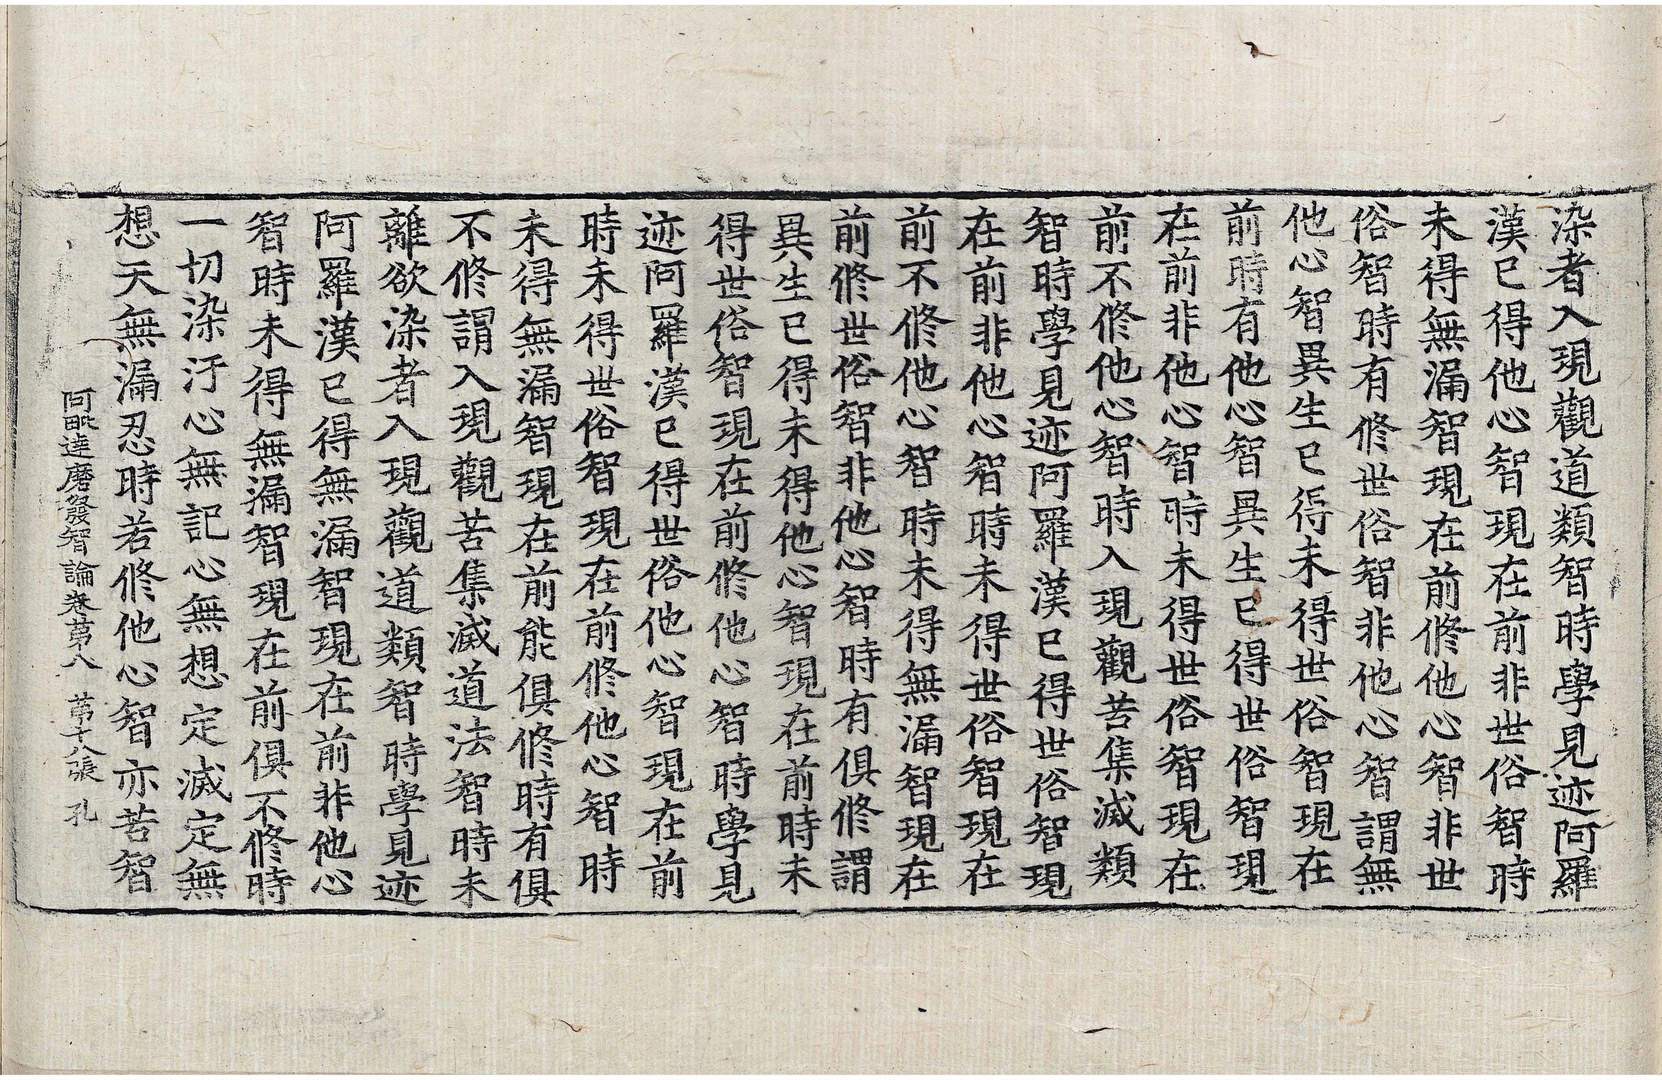 染者入現觀道類智時學見迹阿羅
漢已得他心智現在前非世俗智時
未得無漏智現在前修他心智非世
俗智時有修世俗智非他心智謂無
他心智異生已得未得世俗智現在
前時有他心智異生已得世俗智現
在前非他心智時未得世俗智現在
前不修他心智時入現觀苦集滅類
智時學見迹阿羅漢已得世俗智現
在前非他心智時未得世俗智現在
前不修他心智時未得無漏智現在
前修世俗智非他心智時有俱修謂
異生已得未得他心智現在前時未
得世俗智現在前修他心智時學見
迹阿羅漢已得世俗他心智現在前
時未得世俗智現在前修他心智時
未得無漏智現在前能俱修時有俱
不修謂入現觀苦集滅道法智時未
離欲染者入現觀道類智時學見迹
阿羅漢已得無漏智現在前非他心
智時未得無漏智現在前俱不修時
一切染汙心無記心無想定滅定無
想天無漏忍時若修他心智亦苦智
阿毗達磨發智論卷第八 第十八張 孔